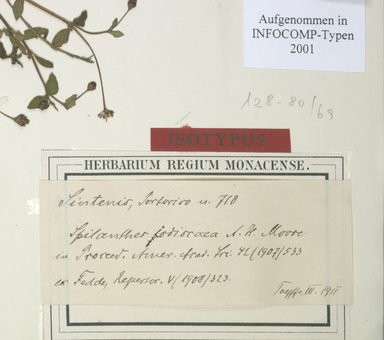 Aufgenommen in
INFOCOMP-Typen
2001
128-80/69
ISOTYPUS
HERBARIUM REGIUM MONACENSE.
Sintenis, Portorico n. 718
Spilanthes iodiscaea A. H. Moore
in Proceed. Amer. Acad. Sci. 42 (1907) 533
ex Fedde, Repertor. V (1908) 323.
III. 1911